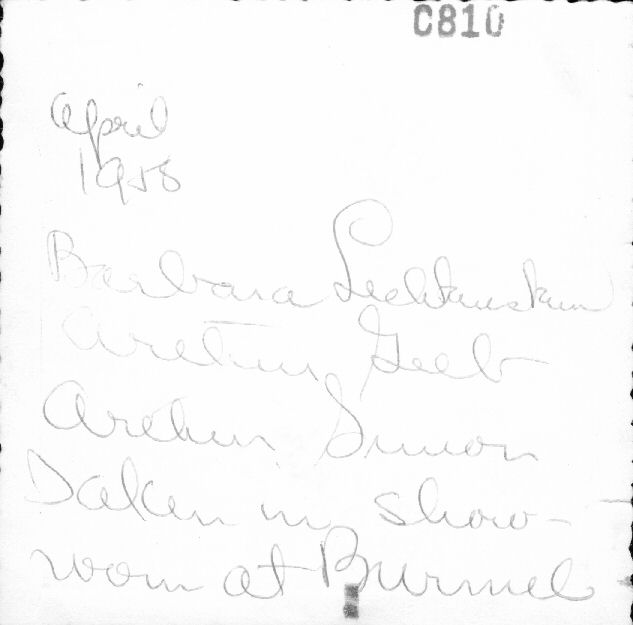 C810
April
1958
Barbara Liechtenstein
Arthur Geeb
Arthur Simon
Taken in show-
room at Burmel